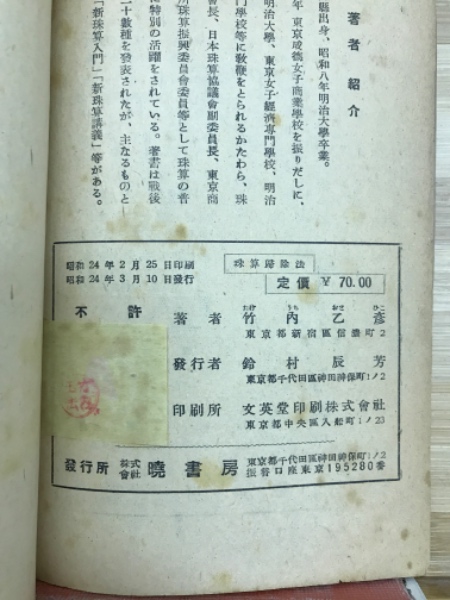 著者紹介
縣出身、昭和八年明治大學卒業。
年東京成德女子商業學校を振りだしに、
明治大學、東京女子經濟專門學校、明治
門學校等に敎鞭をとられるかたわら、珠
會長、日本珠算協議會副委員長、東京商
所珠算振興委員會委員等として珠算の普
に特別の活躍をされている。著書は戰後
二十數種を發表されたが、主なるものと—
「新珠算入門」「新珠算講義」等がある。
昭和24年2月25日印刷
昭和24年3月10日發行
珠算歸除法
定價 ¥ 70.00
不許
著者 竹内乙彦
たけ うち おと ひこ
東京都新宿區信濃町2
發行者 鈴村辰芳
東京都千代田區神田神保町1ノ2
印刷所 文英堂印刷株式會社
東京都中央區入船町1ノ23
發行所 株式會社 曉書房
東京都千代田區神田神保町1ノ2
振替口座東京195280番